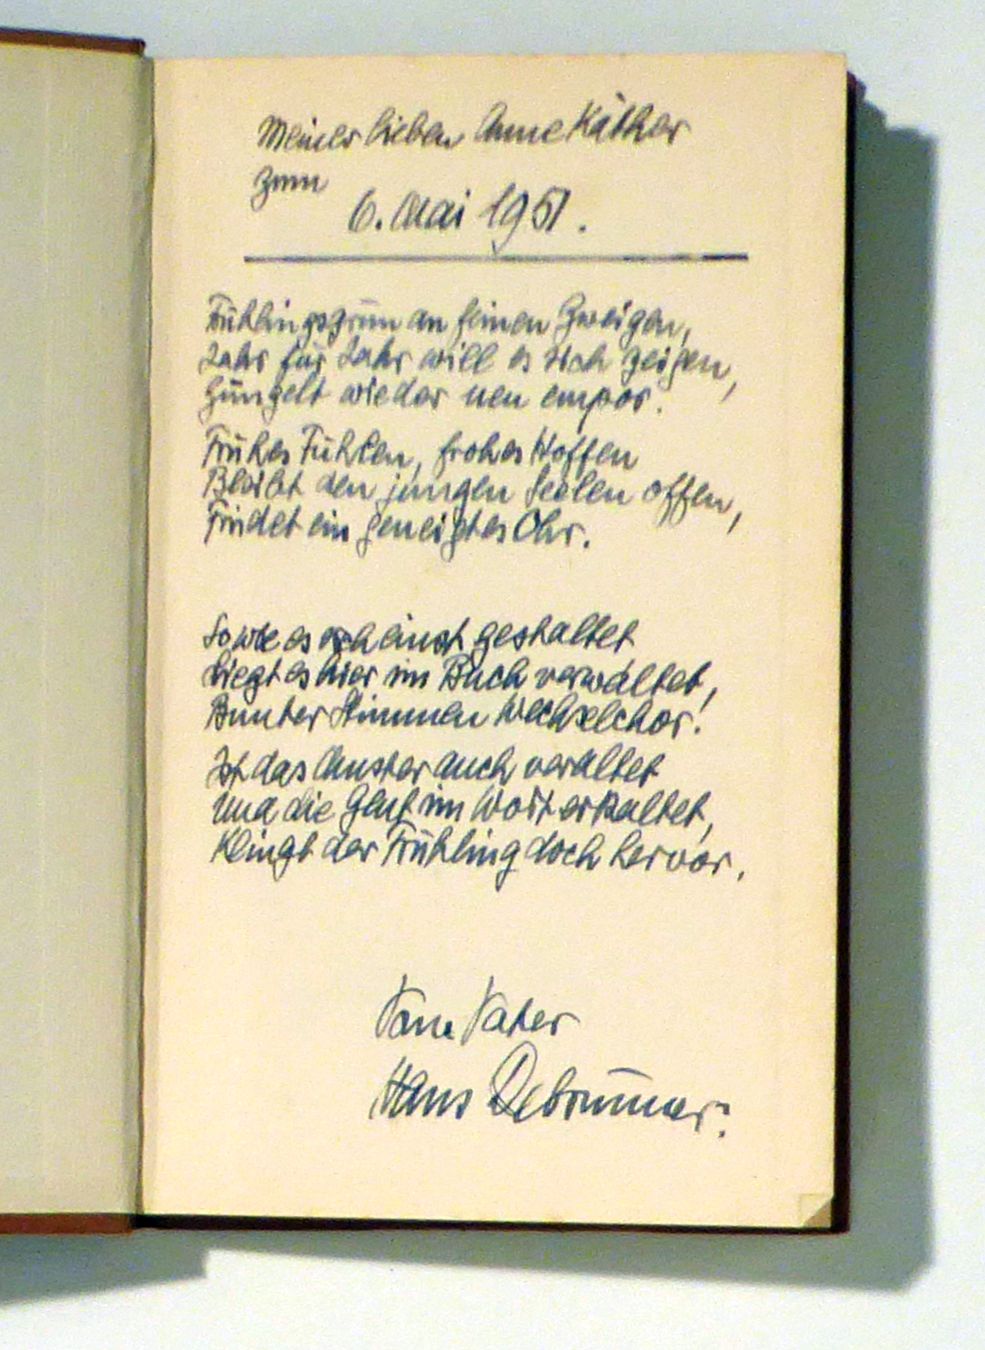 Meiner lieben Anne Käther
zum
6. Mai 1951.
Frühlingsgrün an feinen Zweigen,
Jahr für Jahr will es sich zeigen,
Züngelt wieder neu empor.
Frühes Fühlen, frohes Hoffen
Bleibt den jungen Seelen offen,
Findet ein geneigtes Ohr.
So wie es sich einst gestaltet
Liegt es hier im Buch verwaltet,
Bunter Stimmen Wechselchor!
Ist das Muster auch veraltet
Und die Glut im Wort erkaltet,
Klingt der Frühling doch hervor.
Vater
Hans Debrunner.